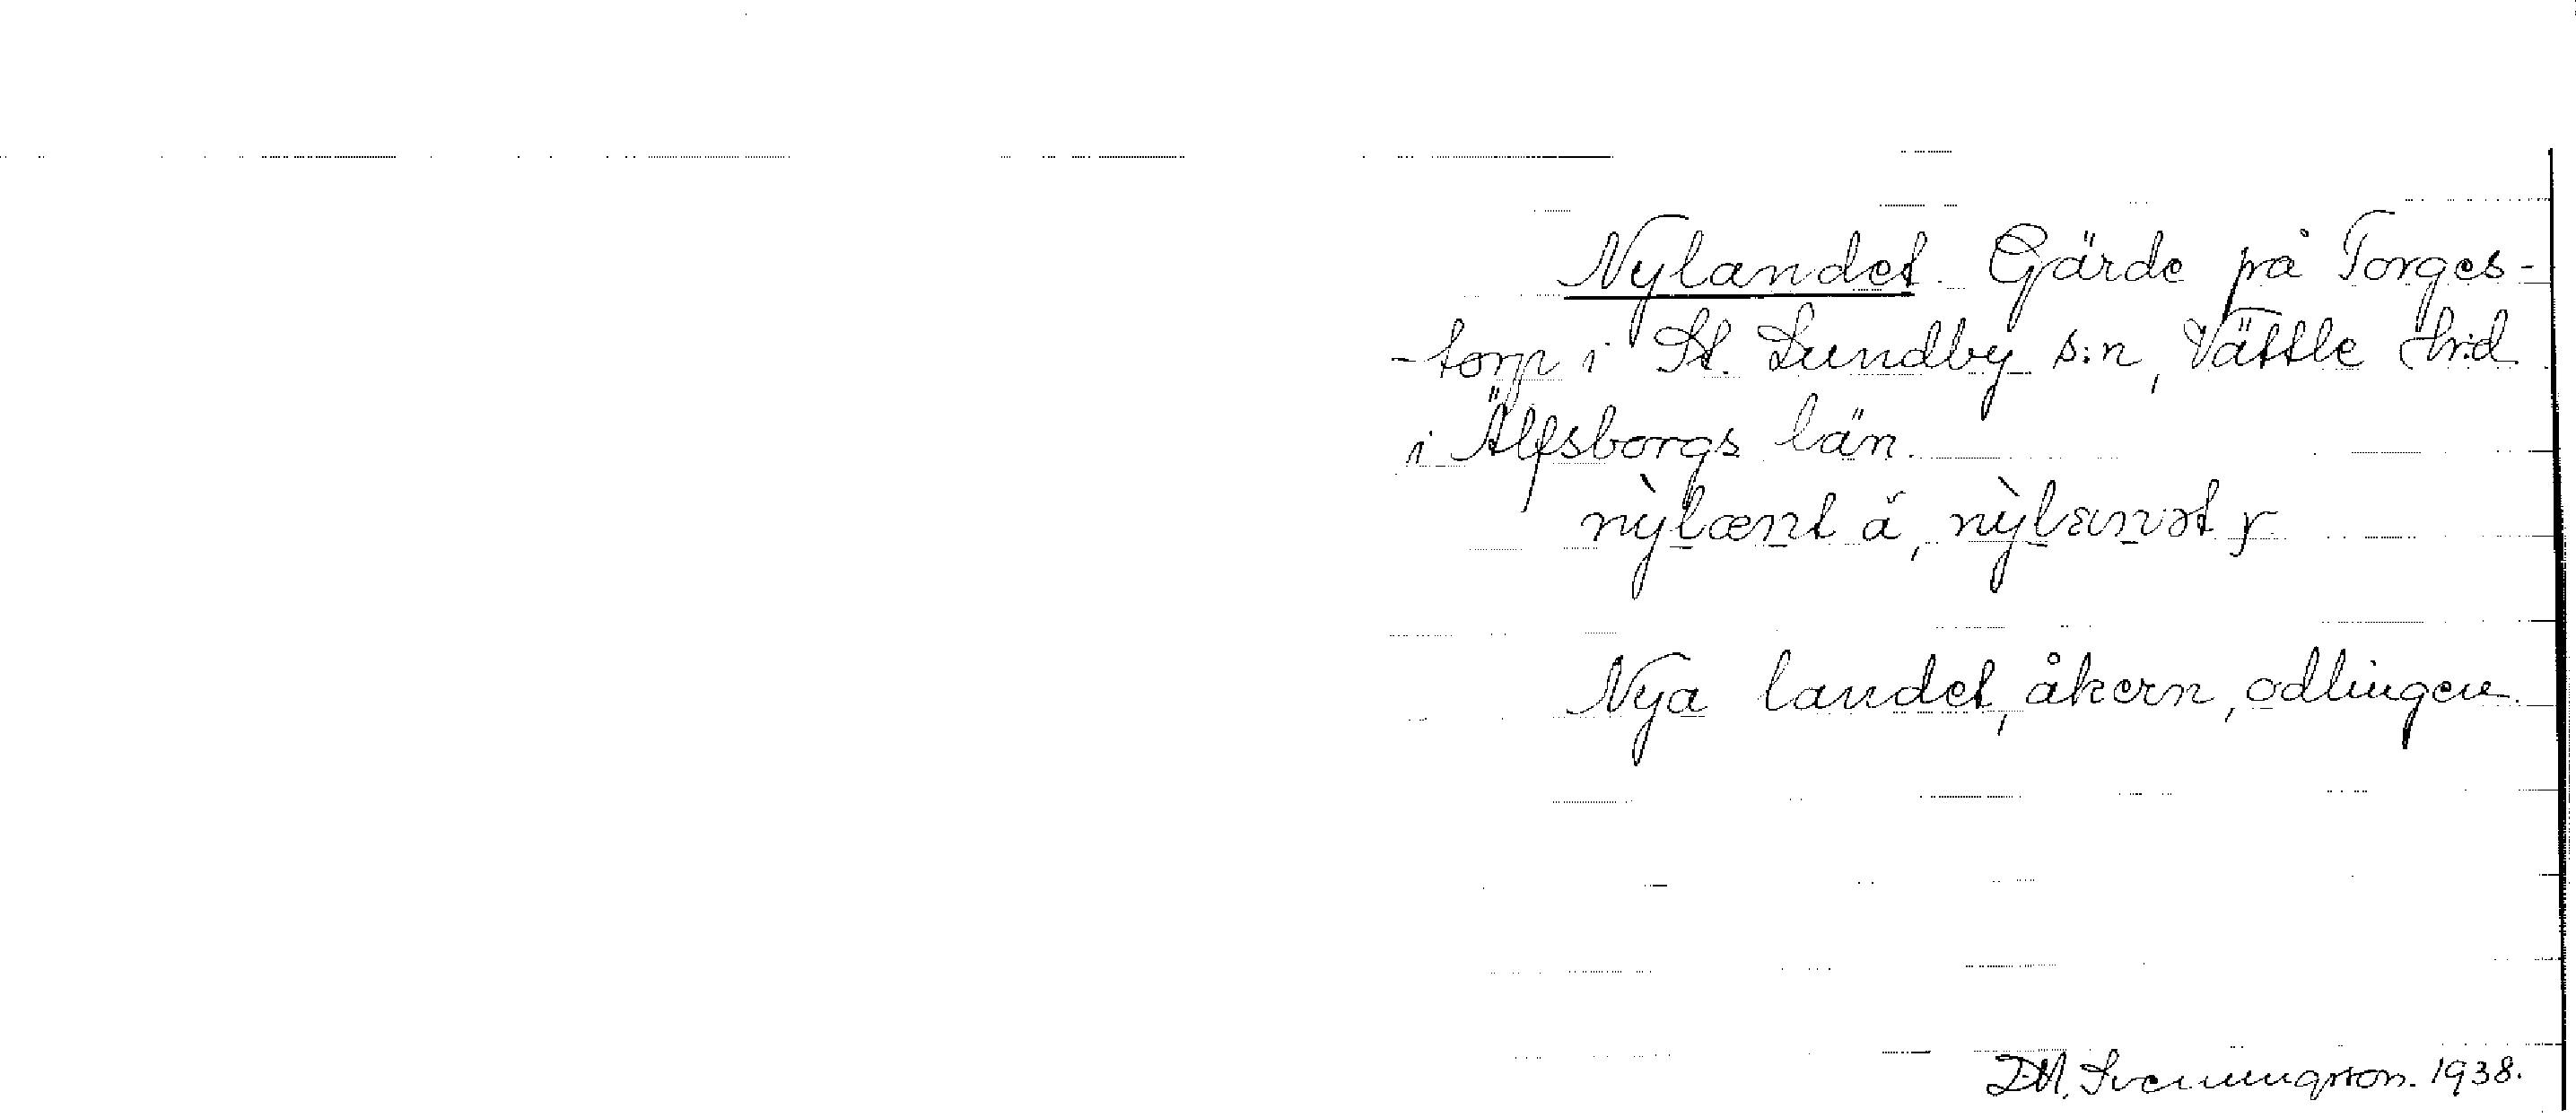 Nylandet. Gärde på Torges-
-torp i St. Lundby s:n, Vättle hr:d
i Älfsborgs län.
nỳlænt ä, nỳlanət y
Nya landet, åkern, odlingen.
D.M. Svenningsson. 1938.